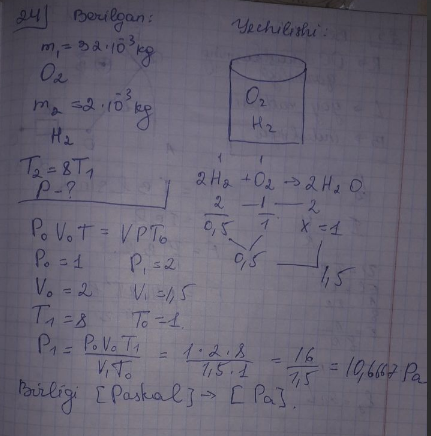 24) Berilgan:
Yechilishi:
m₁ = 32·10⁻³ kg
O₂
m₂ = 2·10⁻³ kg
H₂
T₂ = 8T₁
P - ?
O₂
H₂
1 1
2H₂ + O₂ → 2H₂O
2 — 1 — 2
0,5 1 x = 1
0,5 — 1,5
P₀V₀T = VPT₀
P₀ = 1 P₁ = 2
V₀ = 2 V₁ = 1,5
T₁ = 8 T₀ = 1
P₁ = P₀V₀T₁ / V₁T₀ = 1·2·8 / 1,5·1 = 16 / 1,5 = 10,6667 Pa
Birligi [Paskal] → [Pa].